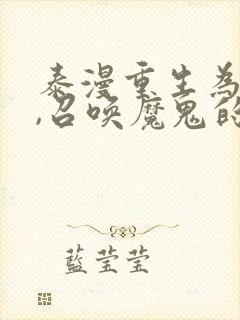 泰漫重生為
,召喚魔鬼的
藍莹莹